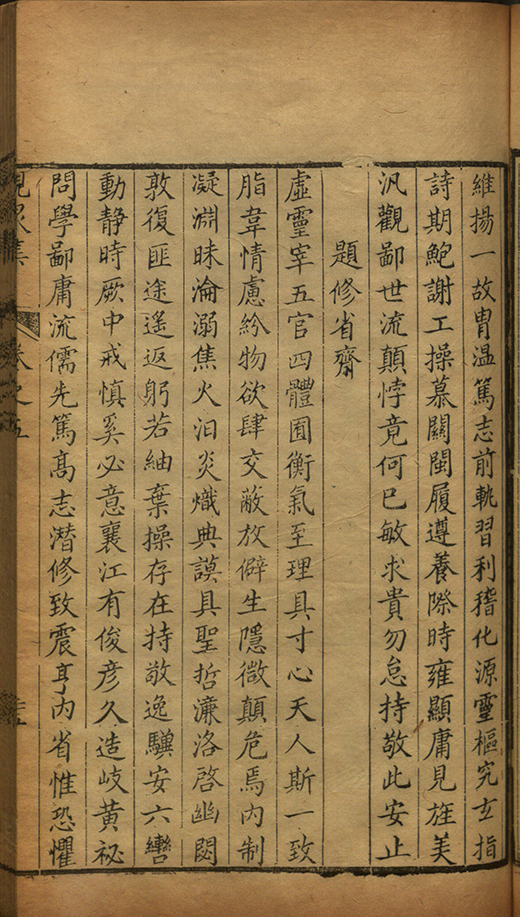 維揚一故冑温篤志前軌習利稽化源靈樞究玄指
詩期鮑謝工操慕關閩履遵養際時雍顯庸見旌美
汎觀鄙世流顛悖竟何已敏求貴勿怠持敬此安止
題修省齋
虛靈宰五官四體囿衡氣至理具寸心天人斯一致
脂韋情慮紛物欲肆交蔽放僻生隱微顛危焉内制
凝淵昧淪溺焦火汩炎熾典謨具聖哲濂洛啓幽閟
敦復匪途遥返躬若紬葉操存在持敬逸驥安六轡
動靜時厥中戒慎奚必意襄江有俊彦久造岐黄祕
問學鄙庸流儒先篤髙志潜修致震亨内省惟恐懼
卷之五